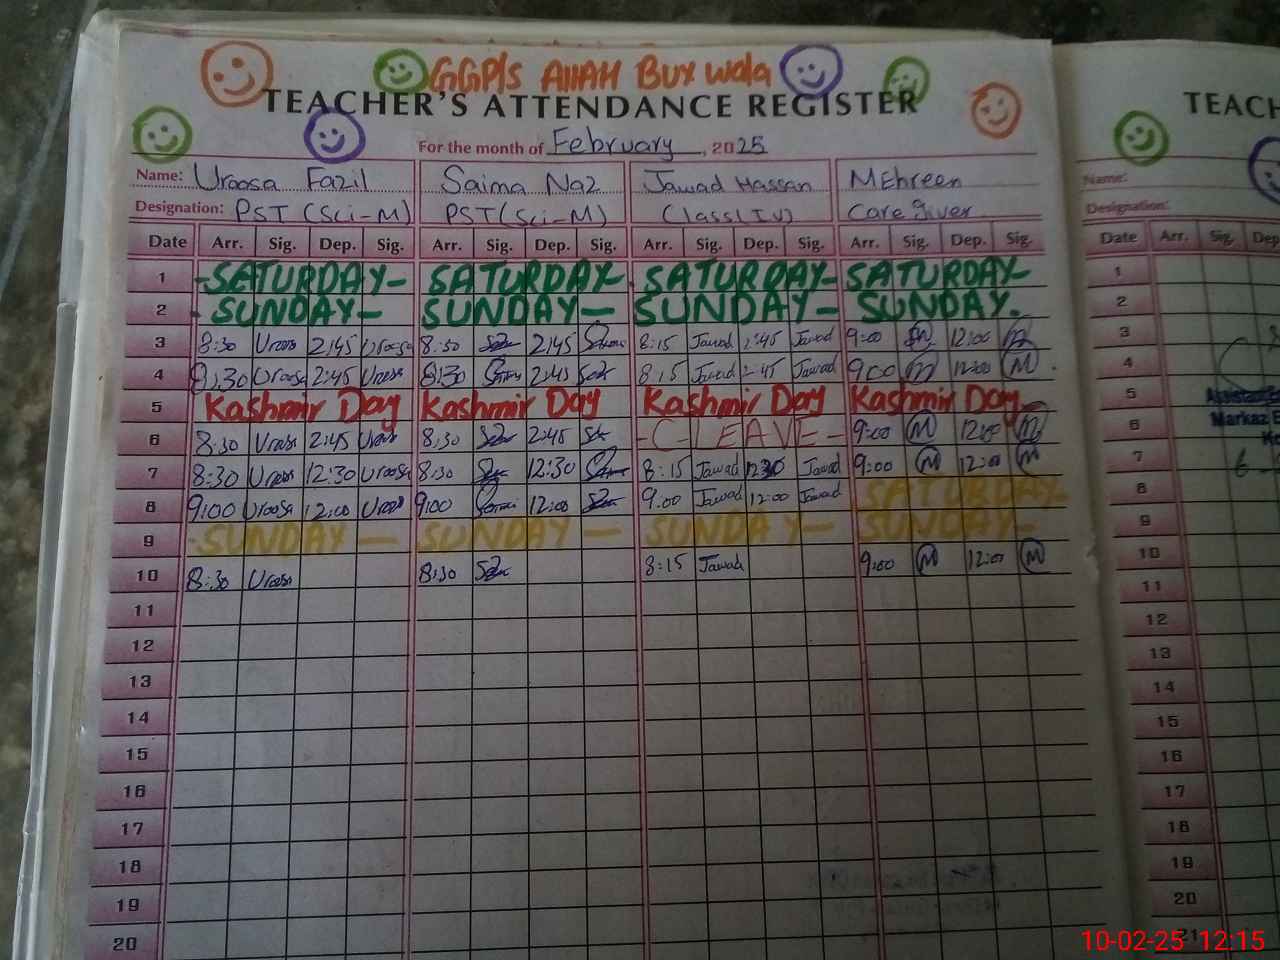 GGP/s AllAH Bux wala
TEACHER'S ATTENDANCE REGISTER
For the month of February, 2025
Name: Uroosa Fazil Saima Naz Jawad Hassan MEhreen
Designation: PST (Sci-M) PST (Sci-M) Class(IV) Care giver
Date Arr. Sig. Dep. Sig. Arr. Sig. Dep. Sig. Arr. Sig. Dep. Sig. Arr. Sig. Dep. Sig.
1 -SATURDAY- SATURDAY- SATURDAY- SATURDAY-
2 -SUNDAY- SUNDAY- SUNDAY- SUNDAY.
3 8:30 Uroosa 2:45 Uroosa 8:30 2:45 8:15 Jawad 2:45 Jawad 9:00 12:00
4 8:30 Uroosa 2:45 Uroosa 8:30 2:45 8:15 Jawad 2:45 Jawad 9:00 M 12:00 M
5 Kashmir Day Kashmir Day Kashmir Day Kashmir Day
6 8:30 Uroosa 2:45 Uroosa 8:30 2:45 -C-LEAVE- 9:00 M 12:00 M
7 8:30 Uroosa 12:30 Uroosa 8:30 12:30 8:15 Jawad 12:30 Jawad 9:00 M 12:00 M
8 9:00 Uroosa 12:00 Uroosa 9:00 12:00 9:00 Jawad 12:00 Jawad SATURDAY-
9 -SUNDAY- SUNDAY- SUNDAY- SUNDAY-
10 8:30 Uroosa 8:30 8:15 Jawad 9:00 M 12:00 M
11
12
13
14
15
16
17
18
19
20
TEACH
Name:
Designation:
Date Arr. Sig. Dep
1
2
3
4
5
Markaz
6
7
8
9
10
11
12
13
14
15
16
17
18
19
20
21
10-02-25 12:15